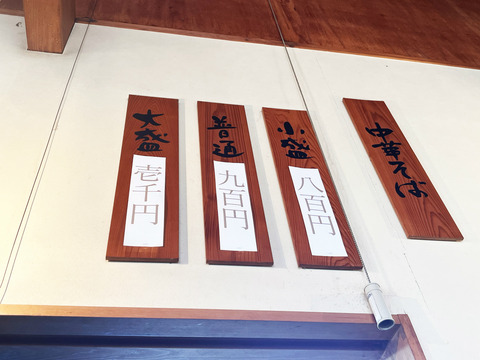 中華そば
小盛
八百円
普通
九百円
大盛
壱千円